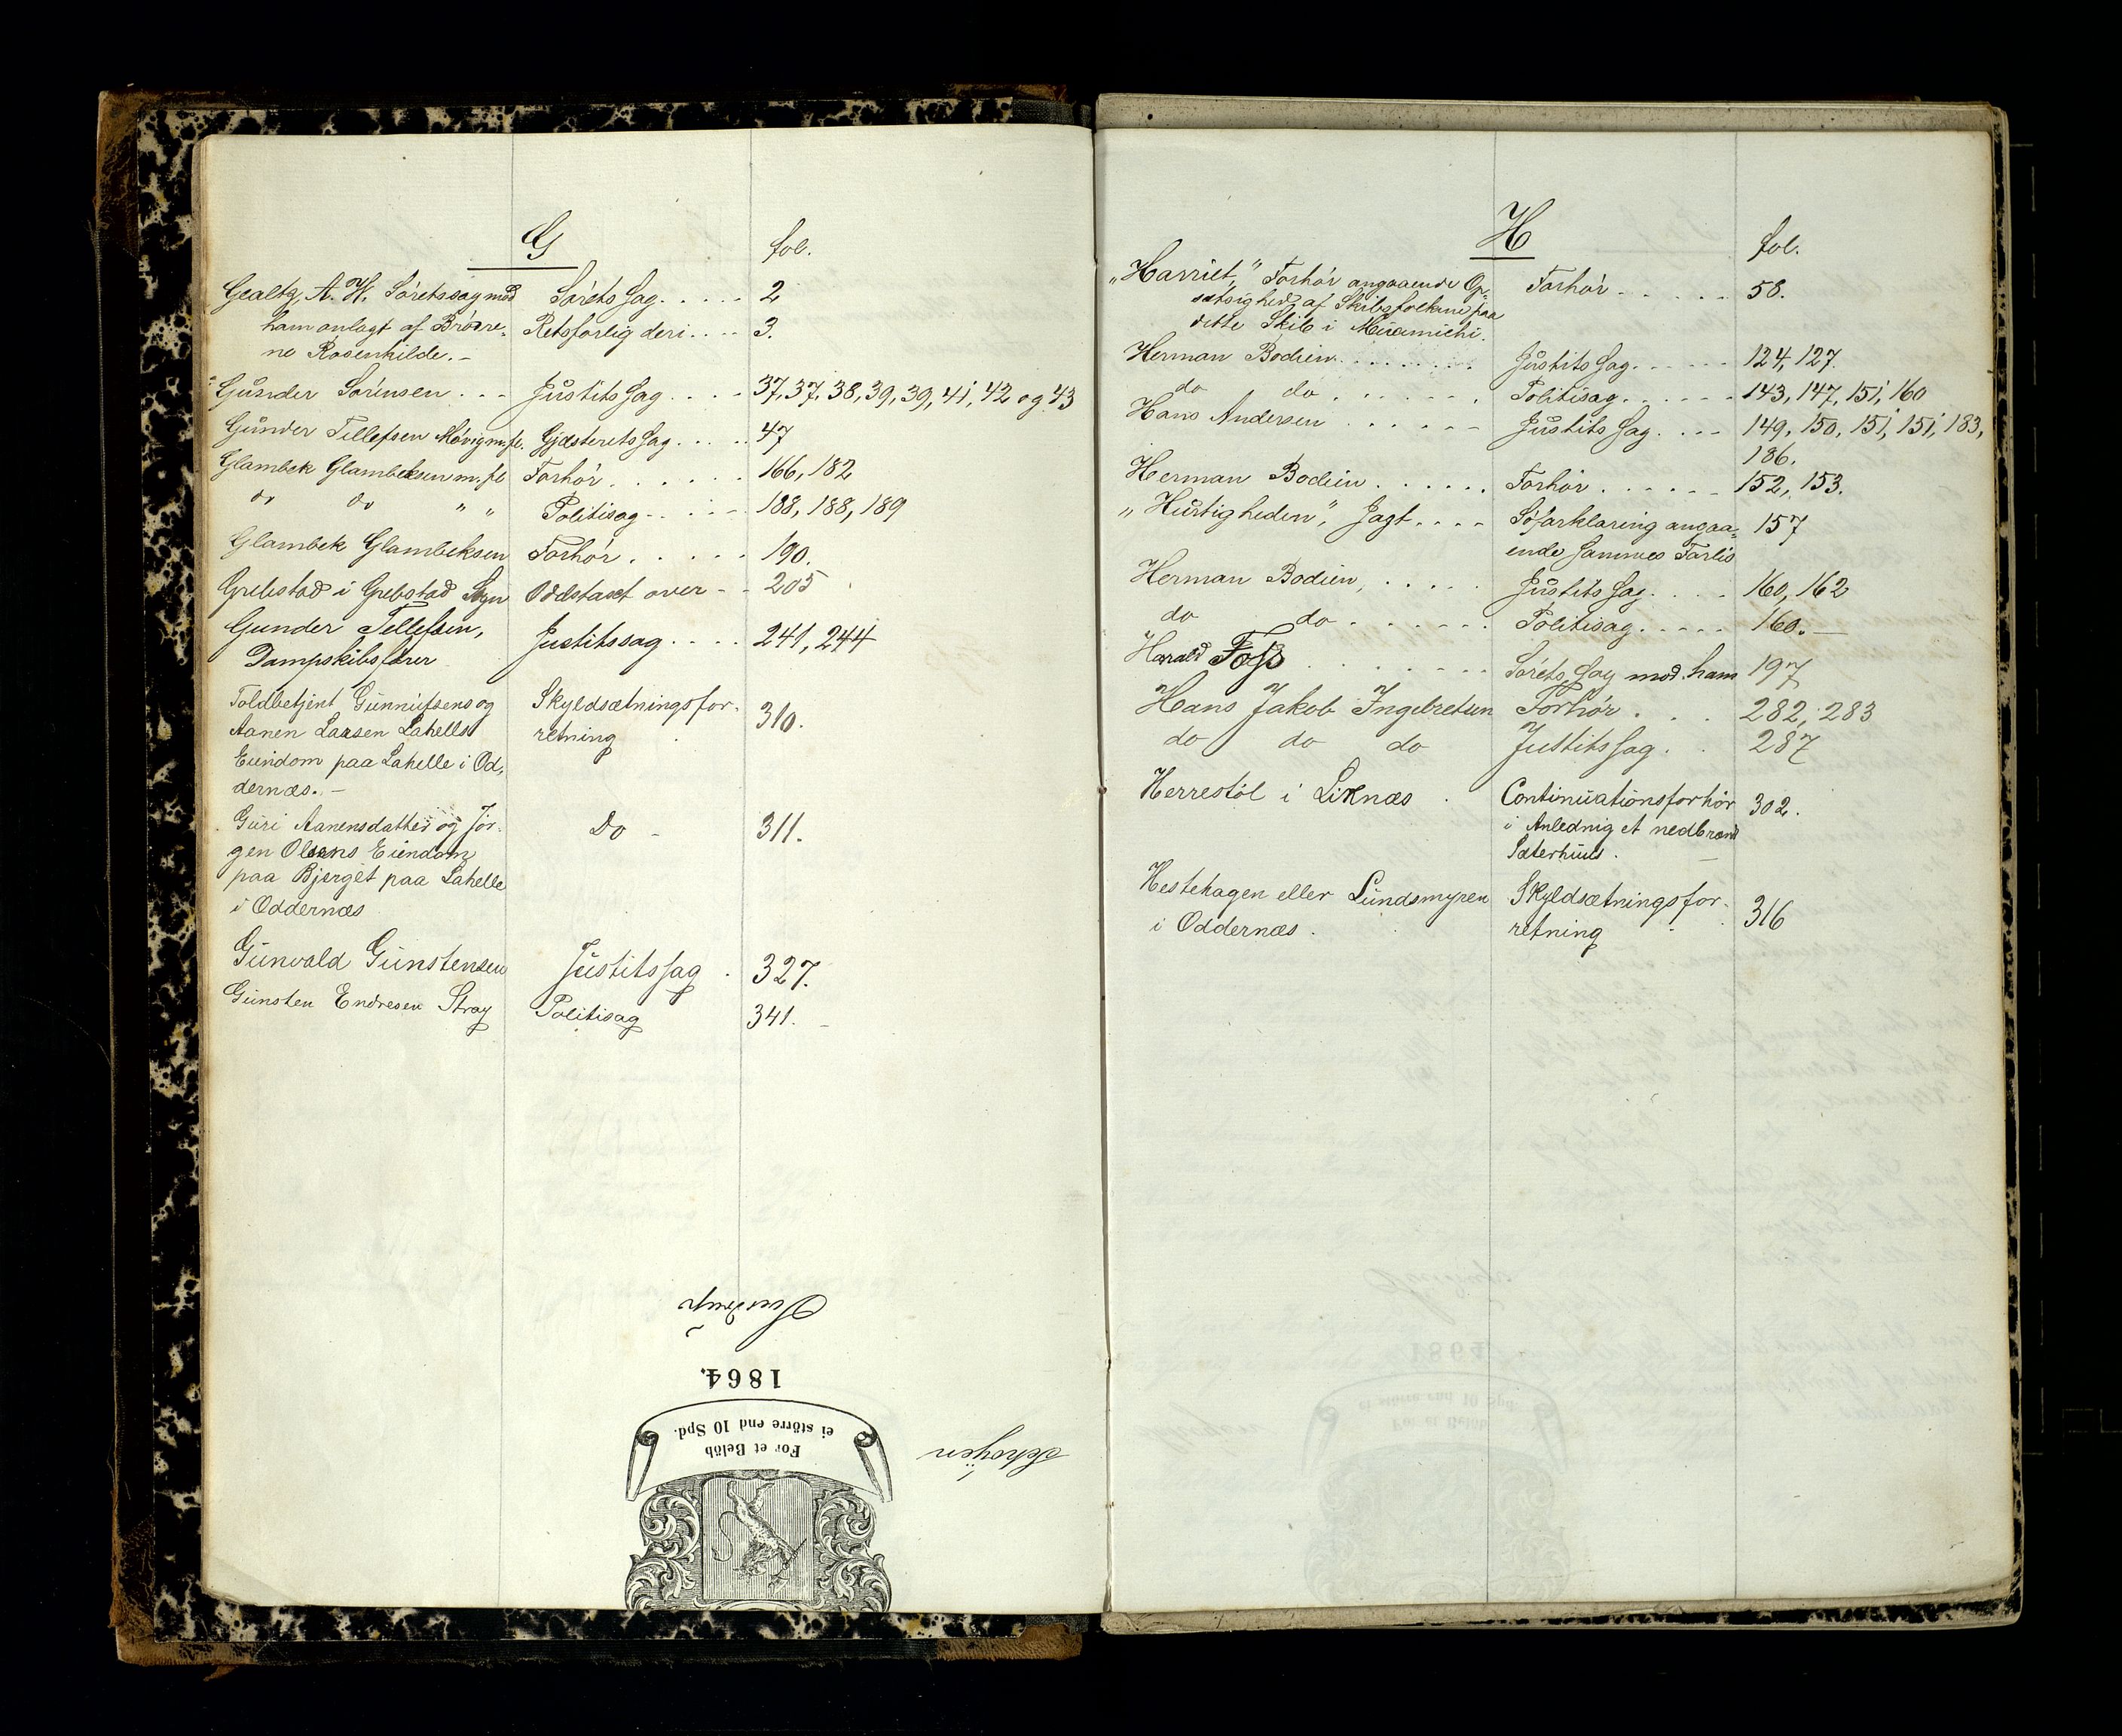 G
fol.
Gealtz, A. H. Søretssag mod Sørets Sag. . . . . 2
ham anlagt af Brødre- Retsforlig deri . . . . 3.
ne Rosenkilde. –
Gunder Sørensen . . . Justits Sag . . . . 37, 37, 38, 39, 39, 41, 42 og 43
Gunder Tellefsen Møvig m. fl. Gjæsterets Sag . . . . 47
Glambek Glambeksen m. fl Forhør . . . . . . 166, 182
do do " " Politisag . . . . . 188, 188, 189
Glambek Glambeksen Forhør . . . . . 190.
Grebstad i Grebstad Sogn Oddstaxt over - - 205
Gunder Tellefsen, Justitssag . . . . 241, 244
Dampskibsfører
Toldbetjent Gunnufsens og Skyldsætningsfor-
Aanen Larsen Lahells retning 310.
Eiendom paa Lahelle i Od-
dernæs. –
Guri Aanensdatter og Jør- Do - 311.
gen Olsens Eiendom
paa Bjerget paa Lahelle
i Oddernæs
Gunvald Gunstensen Justitssag . 327.
Gunsten Endresen Stray Politisag 341. –
Sundrup
1864.
For et Belöb
ei större end 10 Spd.
Schøyen
H
fol.
„Harriet," Forhør angaaende Op- Forhør . . . . . 58.
sætsighed af Skibsfolkene paa
dette Skib i Miramichi.
Herman Bodien . . . . . . . . Justits Sag . . . . . 124, 127.
do do . . . . . . . Politisag . . . . . . 143, 147, 151, 160
Hans Andersen . . . . . . Justits Sag . . . . 149, 150, 151, 151, 183,
186.
Herman Bodien . . . . . . Forhør . . . . . . 152, 153.
„Hurtigheden", Jagt . . . . Søforklaring angaa- 157
ende Sammes Forlis
Herman Bodien, . . . . . Justits Sag . . . . 160, 162
do do . . . . . . . Politisag . . . . . 160. –
Harald Foss . . . . . . . . Sørets Sag mod ham 197
Hans Jakob Ingebretsen Forhør . . . 282, 283
do do do Justits Sag . . 287
Herrestøl i Liknæs . Continuationsforhør 302.
i Anlednig et nedbrænd
Sæterhuus. –
Hestehagen eller Lundsmyren Skyldsætningsfor-
i Oddernæs. retning 316